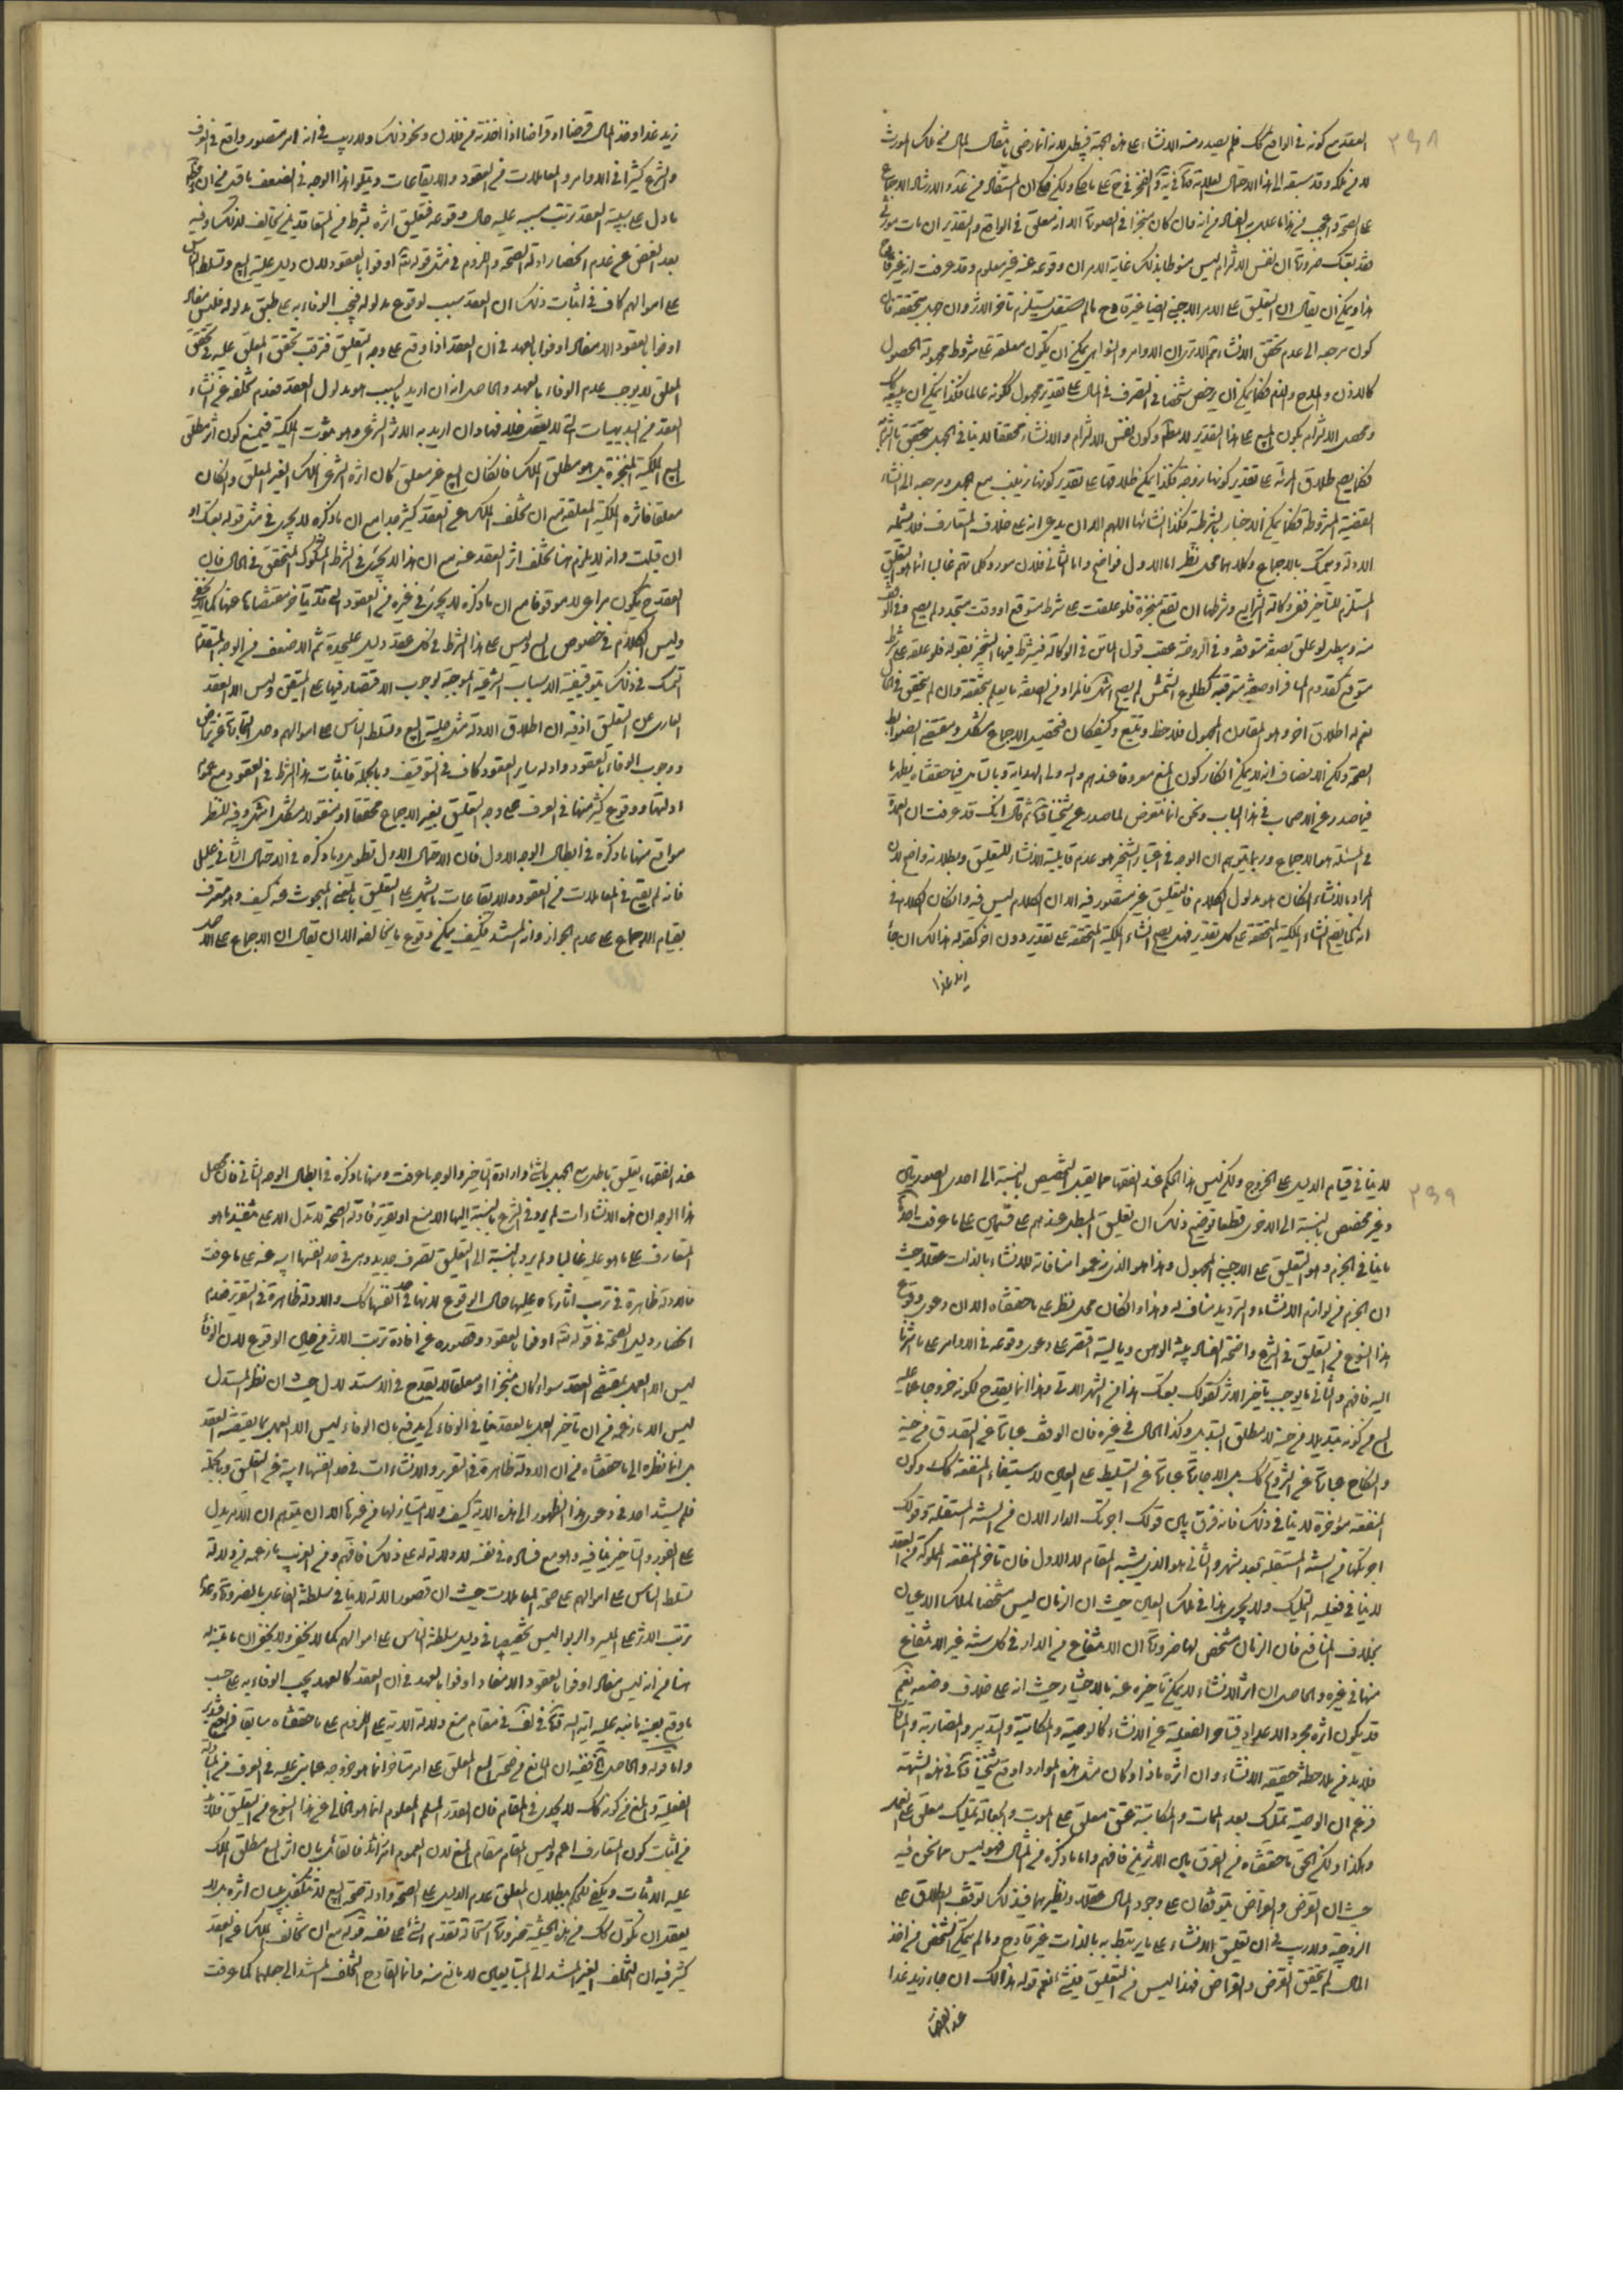 ٣٩٨
العقد مع كونه في الواقع كك فلم يصدر منه الانشاء على هذه الجهة فيبطل لانه انما رضى بانتقال المال من ملك المورث
لا من ملكه وقد سبقه الى هذا الاحتمال العلامة
على الصحة
هذا ويمكن ان يقال ان التعليق على الامر الاجنبي ايضا غير قادح ما لم يستلزم تاخر الاثر وان
كون مرجعه الى عدم تحقق الانشاء ثم الا ترى ان الاوامر والنواهي يمكن ان تكون معلقة على شروط مجهولة الحصول
كالاذن والمدح والذم فكما يمكن ان يرخص شخصا في التصرف في المال على تقدير مجهول لكونه عالما فكذا يمكن ان
فكما يصح طلاق المرئة على تقدير كونها زوجة فكذا يمكن طلاقها على تقدير كونها زينب
القضية المشروطة فكما يمكن الاخبار بالشرطية فكذا انشائها اللهم الا ان يدعى انه على خلاف المتعارف فلا يشمله
الادلة وكلاهما محل نظر اما الاول فواضح واما الثاني فلان
المستلزم للتاخير ففي وكالة الشرايع وشرطها ان تقع منجزة فلو علقت على شرط متوقع او وقت متجدد لم يصح وفي
منه ويبطل لو علق بصفة متوقعة وفي الروضة عقيب قول الماتن في الوكالة فيشترط فيها التنجيز بقوله فلو علقت على شرط
متوقع كقدوم المسافر او صفة مترقبة كطلوع الشمس لم يصح
نعم له اطلاق اخر وهو المقارن المجهول فلاحظ وتتبع وكيف كان فتحصيل الاجماع مشكل ومقتضى الضوابط
الصحة ولكن الانصاف انه لا يمكن انكار كون المنع معروفا عندهم
فيما صدر عن الاصحاب في هذا الباب ونحن انما نتعرض لما صدر عن شيخنا ثم قال انك قد عرفت ان العمدة
في المسئلة هو الاجماع وربما يتوهم ان الوجه في اعتبار التنجيز هو عدم قابلية الانشاء للتعليق وبطلانه واضح لان
المراد بالانشاء ان كان هو مدلول الكلام فالتعليق غير متصور فيه الا ان الكلام ليس فيه وان كان الكلام في
انه كما يصح انشاء الملكية المتحققة على كل تقدير فهل يصح انشاء الملكية المتحققة على تقدير دون اخر كقوله هذا لك ان جاء
زيد غدا
زيد غدا وخذ المال قرضا او قراضا اذا اخذته من فلان ونحو ذلك ولا ريب في انه امر متصور واقع في العرف
والشرع كثيرا في الاوامر والمعاملات من العقود والايقاعات ويتلو هذا الوجه في الضعف ما قيل من ان
ما دل على سببية العقد ترتب مسببه عليه حال وقوعه فتعليق اثره بشرط من المتعاقدين مخالف لذلك وفيه
بعد الغض عن عدم انحصار ادلة الصحة واللزوم في مثل قوله اوفوا بالعقود لان دليل حلية البيع وتسلط الناس
على اموالهم كاف في اثبات ذلك ان العقد سبب لوقوع مدلوله فيجب الوفاء به على طبق مدلوله فليس مفاد
اوفوا بالعقود الا مفاد اوفوا بالعهد في ان العقد اذا وقع على وجه التعليق فترقب تحقق المعلق عليه في تحقق
المعلق لا يوجب عدم الوفاء بالعهد والحاصل انه ان اريد بالمسبب هو مدلول العقد فعدم تخلفه عن انشاء
العقد من البديهيات التي لا يعقد خلافها وان اريد به الاثر الشرعي وهو ثبوت الملكية فيمنع كون اثر مطلق
البيع الملكية المنجزة بل هو مطلق الملك فان كان البيع غير معلق كان اثره الشرعي الملك الغير المعلق وان كان
معلقا فاثره الملكية المعلقة مع ان تخلف الملك عن العقد كثير جدا مع ان ما ذكره لا يجرى في مثل قوله بعتك ان
ان قبلت وانه لا يلزم هنا تخلف اثر العقد عنه مع ان هذا لا يجرى في الشرط المشكوك المتحقق في الحال فان
العقد ح يكون مراعى لا موقوفا مع ان ما ذكره لا يجرى في غيره من العقود التي قد يتاخر مقتضاها عنها كما لا يخفى
وليس الكلام في خصوص البيع وليس على هذا الشرط في كل عقد دليل عليحدة ثم الاضعف من الوجه المتقدم
التمسك في ذلك بتوقيفية الاسباب الشرعية الموجبة لوجوب الاقتصار فيها على المتيقن وليس الا العقد
العارى عن التعليق اذ فيه ان اطلاق الادلة مثل حلية البيع وتسلط الناس على اموالهم وحل التجارة عن تراض
ووجوب الوفاء بالعقود وادلة ساير العقود كاف في التوقيف وبالجملة فاثبات هذا الشرط في العقود مع عموم
ادلتها ووقوع كثير منها في العرف على وجه التعليق بغير الاجماع محققا او منقولا مشكل انتهى وفيه للنظر
مواقع منها ما ذكره في ابطال الوجه الاول فان الاحتمال الاول تطويل وما ذكره في الاحتمال الثاني عليل
فانه لم يقع في المعاملات من العقود والايقاعات ما يشتمل على التعليق بالمعنى المبحوث عنه كيف وهو معترف
بقيام الاجماع على عدم الجواز وانه المستند فكيف يمكن وقوع ما يخالفه الا ان يقال ان الاجماع على
٣٩٩
لا ينافي قيام الدليل على الخروج ولكن ليس هذا الحكم عند الفقهاء مما يقبل التخصيص بالنسبة الى احدى الصورتين
وغير مخصص بالنسبة الى الاخرى قطعا توضيح ذلك ان تعليق المبطل عندهم على قسمين على ما عرفت احدهما
ما ينافي الجزم وهو التعليق على الاجنبي المجهول وهذا هو الذي زعموا منافاته للانشاء بالذات عقلا حيث
ان الجزم من لوازم الانشاء والترديد مناف له وهذا وان كان محل نظر على ما حققناه الا ان دعوى وقوع
هذا النوع من التعليق في الشرع واضحة الفساد
اليه فافهم والثاني ما يوجب تاخير الاثر كقولك بعتك هذا في الشهر الاتي وهذا انما يقدح لكونه خروجا عما عليه
البيع من كونه تبديلا من حينه لا مطلق التبديل وكذا الحال في غيره فان الوقف عبارة عن التصدق من حينه
والنكاح عبارة عن التزويج كك بل الاجارة عبارة عن التسليط على العين لاستيفاء المنفعة كك وكون
المنفعة مؤخرة لا ينافي ذلك فانه فرق بين قولك اجرتك الدار الان في السنة المستقبلة وقولك
اجرتكها في السنة المستقبلة بعد شهر والثاني هو الذي يشبه المقام لا الاول فان تاخر المنفعة المملوكة من العقد
لا ينافي فعلية التمليك ولا يجرى هذا في ملك العين حيث ان الزمان ليس مشخصا لملك الاعيان
بخلاف المنافع فان الزمان مشخص لها ضرورة ان الانتفاع من الدار في كل سنة غير الانتفاع
منها في غيره والحاصل ان اثر الانشاء لا يمكن تاخيره عنه بالاختيار حيث انه على خلاف وضعه نعم
قد يكون اثره مجرد الاعداد فيتاخر الفعلية عن الانشاء كالوصية والمكاتبة والتدبير والمضاربة
فلا بد من ملاحظة حقيقة الانشاء وان اثره ماذا وكان مثل هذه الموارد اوقع شيخنا في هذه الشبهة
فزعم ان الوصية تمليك بعد الممات والمكاتبة عتق معلق على الموت والجعالة تمليك معلق على العمل
وهكذا ولكن الحق ما حققناه من الفرق بين الاثرين فافهم واما ما ذكره من المثال فهو ليس مما نحن فيه
حيث ان القرض والقراض يتوقفان على وجود المال عقلا ونظيرهما في ذلك توقف الطلاق على
الزوجية ولا ريب في ان تعليق الانشاء على ما يرتبط به بالذات غير قادح وما لم يتمكن الشخص من اخذ
المال لم يتحقق القرض والقراض فهذا ليس من التعليق في شئ نعم قوله هذا لك ان جاء زيد غدا
عند الفقهاء
عند الفقهاء تعليق باطل مع الجهل بالشئ او ارادة التاخير والوجه ما عرفت ومنها ما ذكره في ابطال الوجه الثاني فان محصل
هذا الوجه ان هذه الانشاءات لم يرد في الشرع بالنسبة اليها الا منع او تقرير فادلة الصحة لا تدل الا على تنفيذ ما هو
المتعارف على ما هو عليه غالبا ولم يرد بالنسبة الى التعليق تصرف جديد وهى في حد انفسها ابية عنه على ما عرفت
فالادلة ظاهرة في ترتب اثارها عليها حال الوقوع لانها في حد انفسها كك والادلة ظاهرة في التقرير فعدم
انحصار دليل الصحة في قوله اوفوا بالعقود وقصوره عن افادة ترتب الاثر من حين الوقوع لان الوفاء
ليس الا العمل بمقتضى العقد سواء كان منجزا او معلقا لا يقدح في الاستدلال حيث ان نظر المستدل
ليس الا ما زعمه من ان تاخير العمل بالعقد ينافي الوفاء كى يدفع بان الوفاء ليس الا العمل بما يقتضيه العقد
بل انما نظره الى ما حققناه من ان الادلة ظاهرة في التقرير والانشاءات في حد انفسها ابية عن التعليق وبالجملة
فلم يستند احد في دعوى هذا الظهور الى هذه الاية كيف ولا امتياز لها من غيرها الا ان يتوهم ان الامر يدل
على الفور والتاخير ينافيه وهو مع فساده في نفسه لا دلالة له على ذلك فافهم ومن الغريب ما زعمه من دلالة
تسلط الناس على اموالهم على صحة المعاملات حيث ان قصور الادلة لا ينافي سلطنة الفاعل بالضرورة
ترتب الاثر على الميسر والربوا ليس تخصيصا في دليل سلطنة الناس على اموالهم كما لا يخفى ولا يخفى ان ما نبه له
هنا من انه ليس مفاد اوفوا بالعقود الا مفاد اوفوا بالعهد في ان العقد كالعهد يجب الوفاء به على حسب
ما وقع بعينه ما نبه عليه اية الله في مقام منع دلالة الاية على اللزوم على ما حققناه سابقا فراجع
واما قوله والحاصل ففيه ان المانع من صحة البيع المعلق على امر متاخر انما هو خروجه عما بنى عليه في العرف من المبادلة
الفعلية والمنع من كونه كك لا يجدى في المقام فان القدر المسلم المعلوم انما هو الخالى عن هذا النوع من التعليق فلا بد
من اثبات كون المتعارف اعم وليس المقام مقام المنع لان العموم امر زائد فالقائل بان اثر البيع مطلق الملك
عليه الاثبات ويكفى للحكم ببطلان المعلق عدم الدليل على الصحة وادلة صحة البيع لا تتكفل ببيان اثره بل لا
يعقل ان تكون كك من هذه الحيثية ضرورة استحالة تقدم الشئ على نفسه قوله مع ان تخلف الملك عن العقد
كثير فيه ان التخلف الغير المستند الى المتبايعين لا مانع منه وانما القادح التخلف المستند الى جعلهما كما عرفت